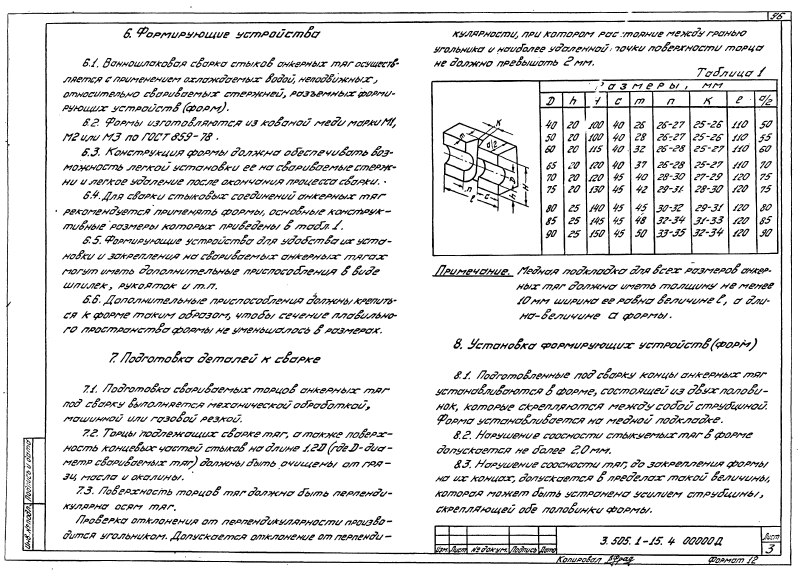 96
6. Формирующие устройства
6.1. Ванношлаковая сварка стыков анкерных тяг осуществ-
ляется с применением охлаждаемых водой, неподвижных,
относительно свариваемых стержней, разъемных форми-
рующих устройств (форм).
6.2. Формы изготовляются из кованой меди марки М1,
М2 или М3 по ГОСТ 859-78.
6.3. Конструкция формы должна обеспечивать воз-
можность легкой установки ее на свариваемые стерж-
ни и легкое удаление после окончания процесса сварки.
6.4. Для сварки стыковых соединений анкерных тяг
рекомендуется применять формы, основные конструк-
тивные размеры которых приведены в табл. 1.
6.5. Формирующие устройства для удобства их уста-
новки и закрепления на свариваемых анкерных тягах
могут иметь дополнительные приспособления в виде
шпилек, рукояток и т.п.
6.6. Дополнительные приспособления должны крепить-
ся к форме таким образом, чтобы сечение плавильно-
го пространства формы не уменьшалось в размерах.
7. Подготовка деталей к сварке
7.1. Подготовка свариваемых торцов анкерных тяг
под сварку выполняется механической обработкой,
машинной или газовой резкой.
7.2. Торцы подлежащих сварке тяг, а также поверх-
ность концевых частей стыков на длине 1,2D (где D-диа-
метр свариваемых тяг) должны быть очищены от гря-
зи, масла и окалины.
7.3. Поверхность торцов тяг должна быть перпенди-
кулярна осям тяг.
Проверка отклонения от перпендикулярности произво-
дится угольником. Допускается отклонение от перпенди-
кулярности, при котором расстояние между гранью
угольника и наиболее удаленной точки поверхности торца
не должно превышать 2 мм.
Таблица 1
Размеры, мм
D h f c m n к е a/2
40 20 100 40 26 26-27 25-26 110 50
50 20 100 40 28 26-27 25-26 110 55
60 20 115 40 32 26-28 25-27 110 60
65 20 120 40 37 26-28 25-27 110 70
70 20 120 45 40 28-30 27-29 120 75
75 20 130 45 42 29-31 28-30 120 75
80 25 140 45 45 30-32 29-31 120 80
85 25 145 45 48 32-34 31-33 120 85
90 25 150 45 50 33-35 32-34 120 90
Примечание. Медная подкладка для всех размеров анкер-
ных тяг должна иметь толщину не менее
10 мм ширина ее равна величине ℓ, а дли-
на-величине а формы.
8. Установка формирующих устройств (форм)
8.1. Подготовленные под сварку концы анкерных тяг
устанавливаются в форме, состоящей из двух полови-
нок, которые скрепляются между собой струбциной.
Форма устанавливается на медной подкладке.
8.2. Нарушение соосности стыкуемых тяг в форме
допускается не более 2,0 мм.
8.3. Нарушение соосности тяг, до закрепления формы
на их концах, допускается в пределах такой величины,
которая может быть устранена усилием струбцины,
скрепляющей обе половинки формы.
Инв. № подл. Подпись и дата
Изм. Лист № докум. Подпись Дата
3.505.1-15.4 00000Д
Лист
3
Копировал
Формат 12